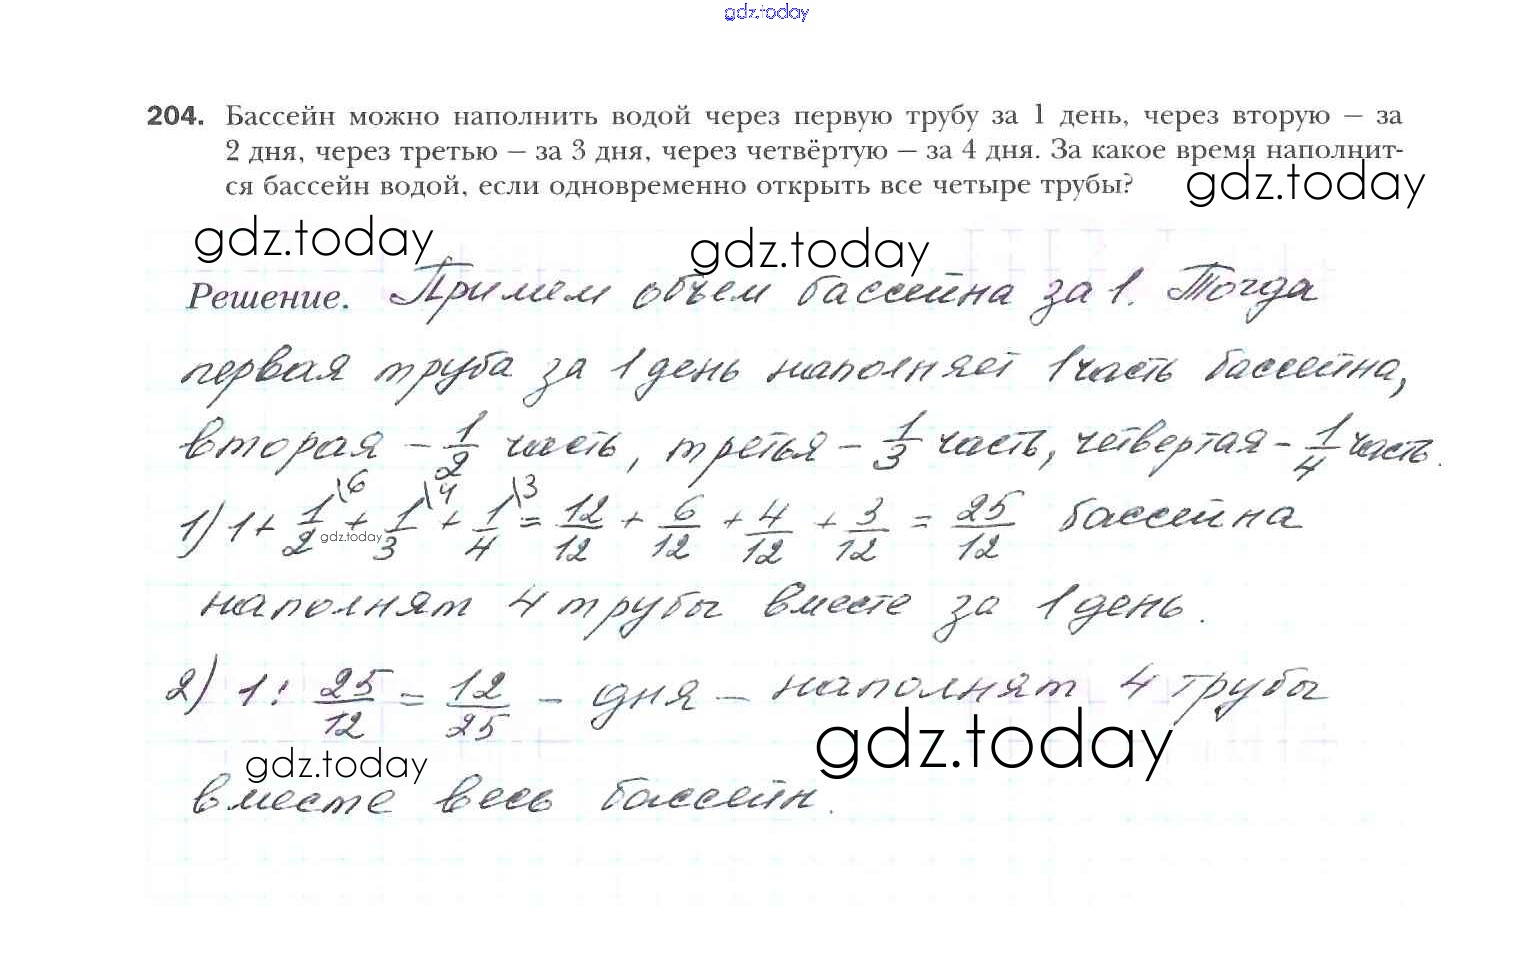 gdz.today
204. Бассейн можно наполнить водой через первую трубу за 1 день, через вторую – за
2 дня, через третью – за 3 дня, через четвёртую – за 4 дня. За какое время наполнит-
ся бассейн водой, если одновременно открыть все четыре трубы?
gdz.today
gdz.today
gdz.today
Решение. Примем объем бассейна за 1. Тогда
первая труба за 1 день наполняет 1 часть бассейна,
вторая – 1/2 часть, третья – 1/3 часть, четвертая – 1/4 часть.
1) 1 + 1/2 \6 + 1/3 \4 + 1/4 \3 = 12/12 + 6/12 + 4/12 + 3/12 = 25/12 бассейна
gdz.today
наполнят 4 трубы вместе за 1 день.
2) 1 : 25/12 = 12/25 – дня – наполнят 4 трубы
gdz.today
gdz.today
вместе весь бассейн.